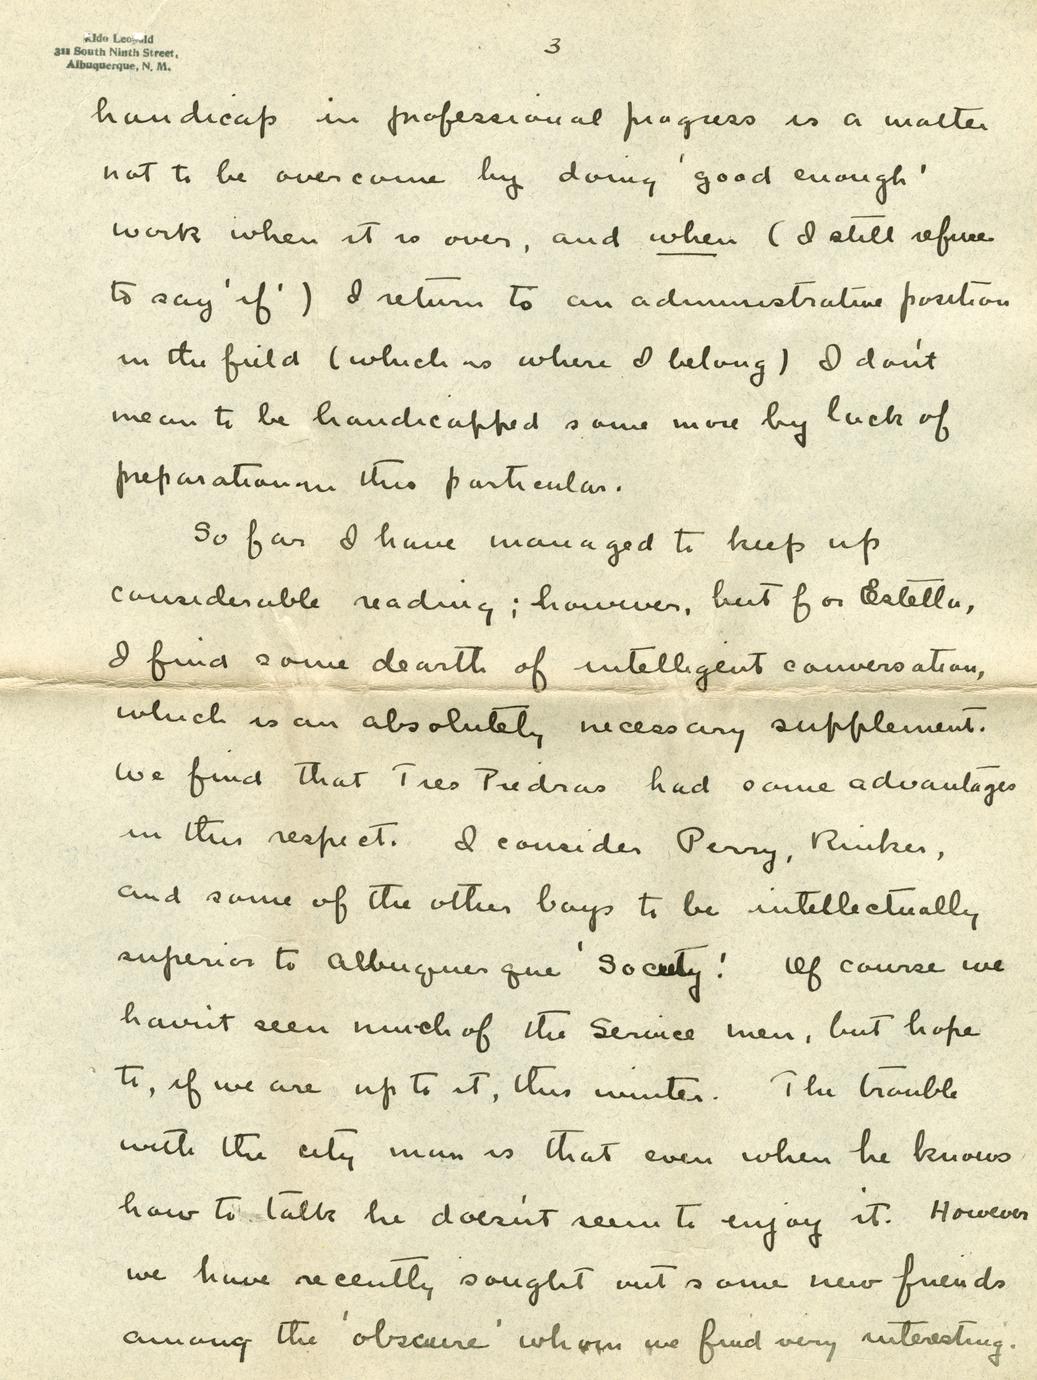 Aldo Leopold
311 South Ninth Street,
Albuquerque, N. M.
3
handicap in professional progress is a matter
not to be overcome by doing 'good enough'
work when it is over, and when (I still refuse
to say 'if') I return to an administrative position
in the field (which is where I belong) I don't
mean to be handicapped some more by lack of
preparation in this particular.
So far I have managed to keep up
considerable reading; however, but for Estella,
I find some dearth of intelligent conversation,
which is an absolutely necessary supplement.
We find that Tres Piedras had some advantages
in this respect. I consider Perry, Rinker,
and some of the other boys to be intellectually
superior to Albuquerque 'Society'. Of course we
havn't seen much of the Service men, but hope
to, if we are up to it, this winter. The trouble
with the city man is that even when he knows
how to talk he doesn't seem to enjoy it. However
we have recently sought out some new friends
among the 'obscure' whom we find very interesting.